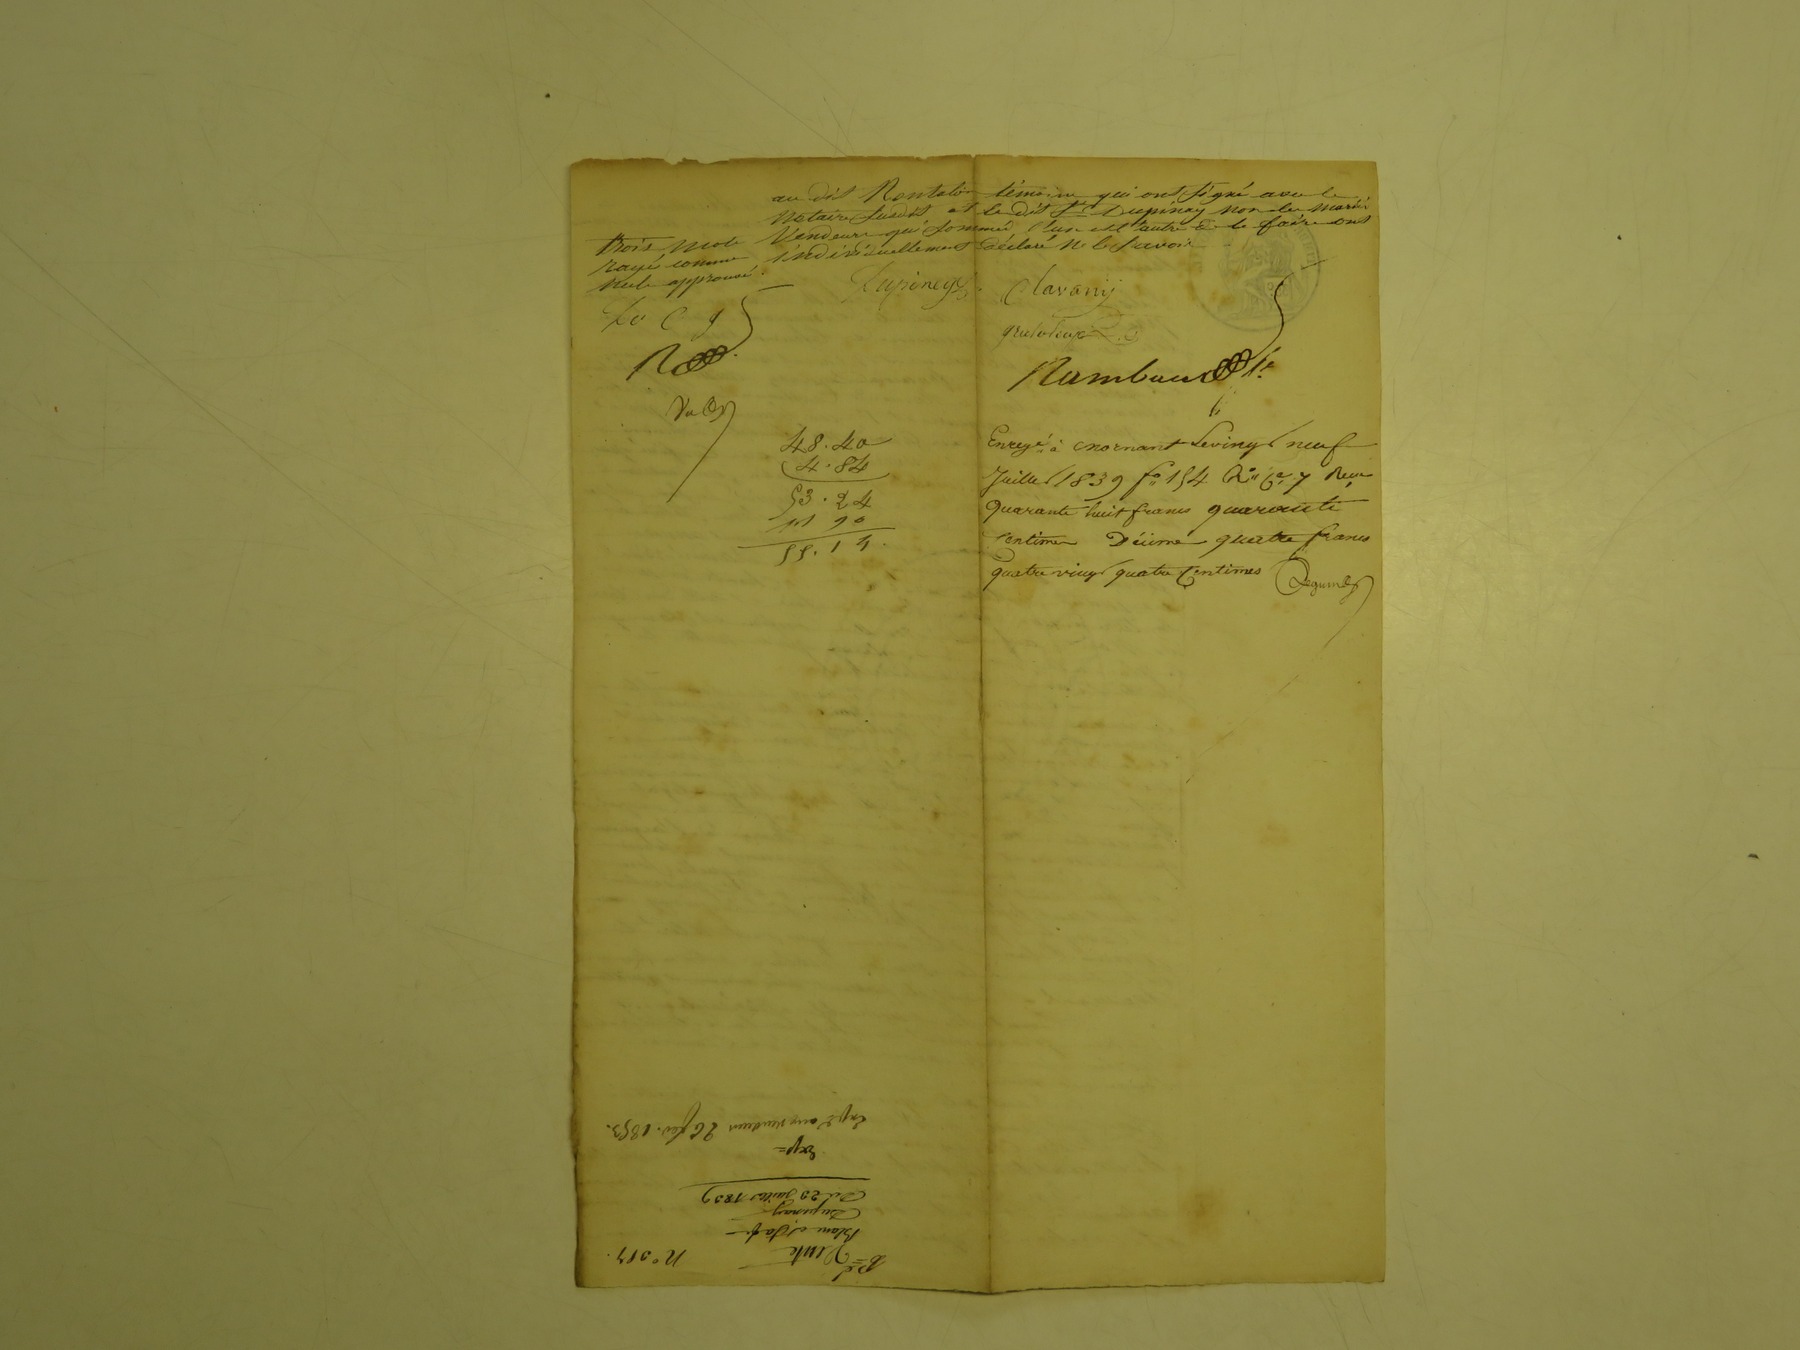 au dit Rontalon témoins qui ont signé avec le
Notaire susdit et le dit Sr Dupinay non les mariés
Vendeurs qui sommés l'un et l'autre de le faire ont
individuellement déclaré ne le savoir
trois mots
rayé comme
nuls approuvé.
Dupiney
Clavany
D C g
R
Rambaud
48.40
4.84
53.24
1 90
55.14
Enregé à Mornant le vingt neuf
Juillet 1839 fo 154 Ro Ce 7 Reçu
quarante huit francs quarante
centimes Décime quatre francs
quatre vingt quatre Centimes
Vente
Blanc et
Dupinay
Du 23 Juillet 1839
Exp=
Expé aux vendeurs 26 fév. 1853.